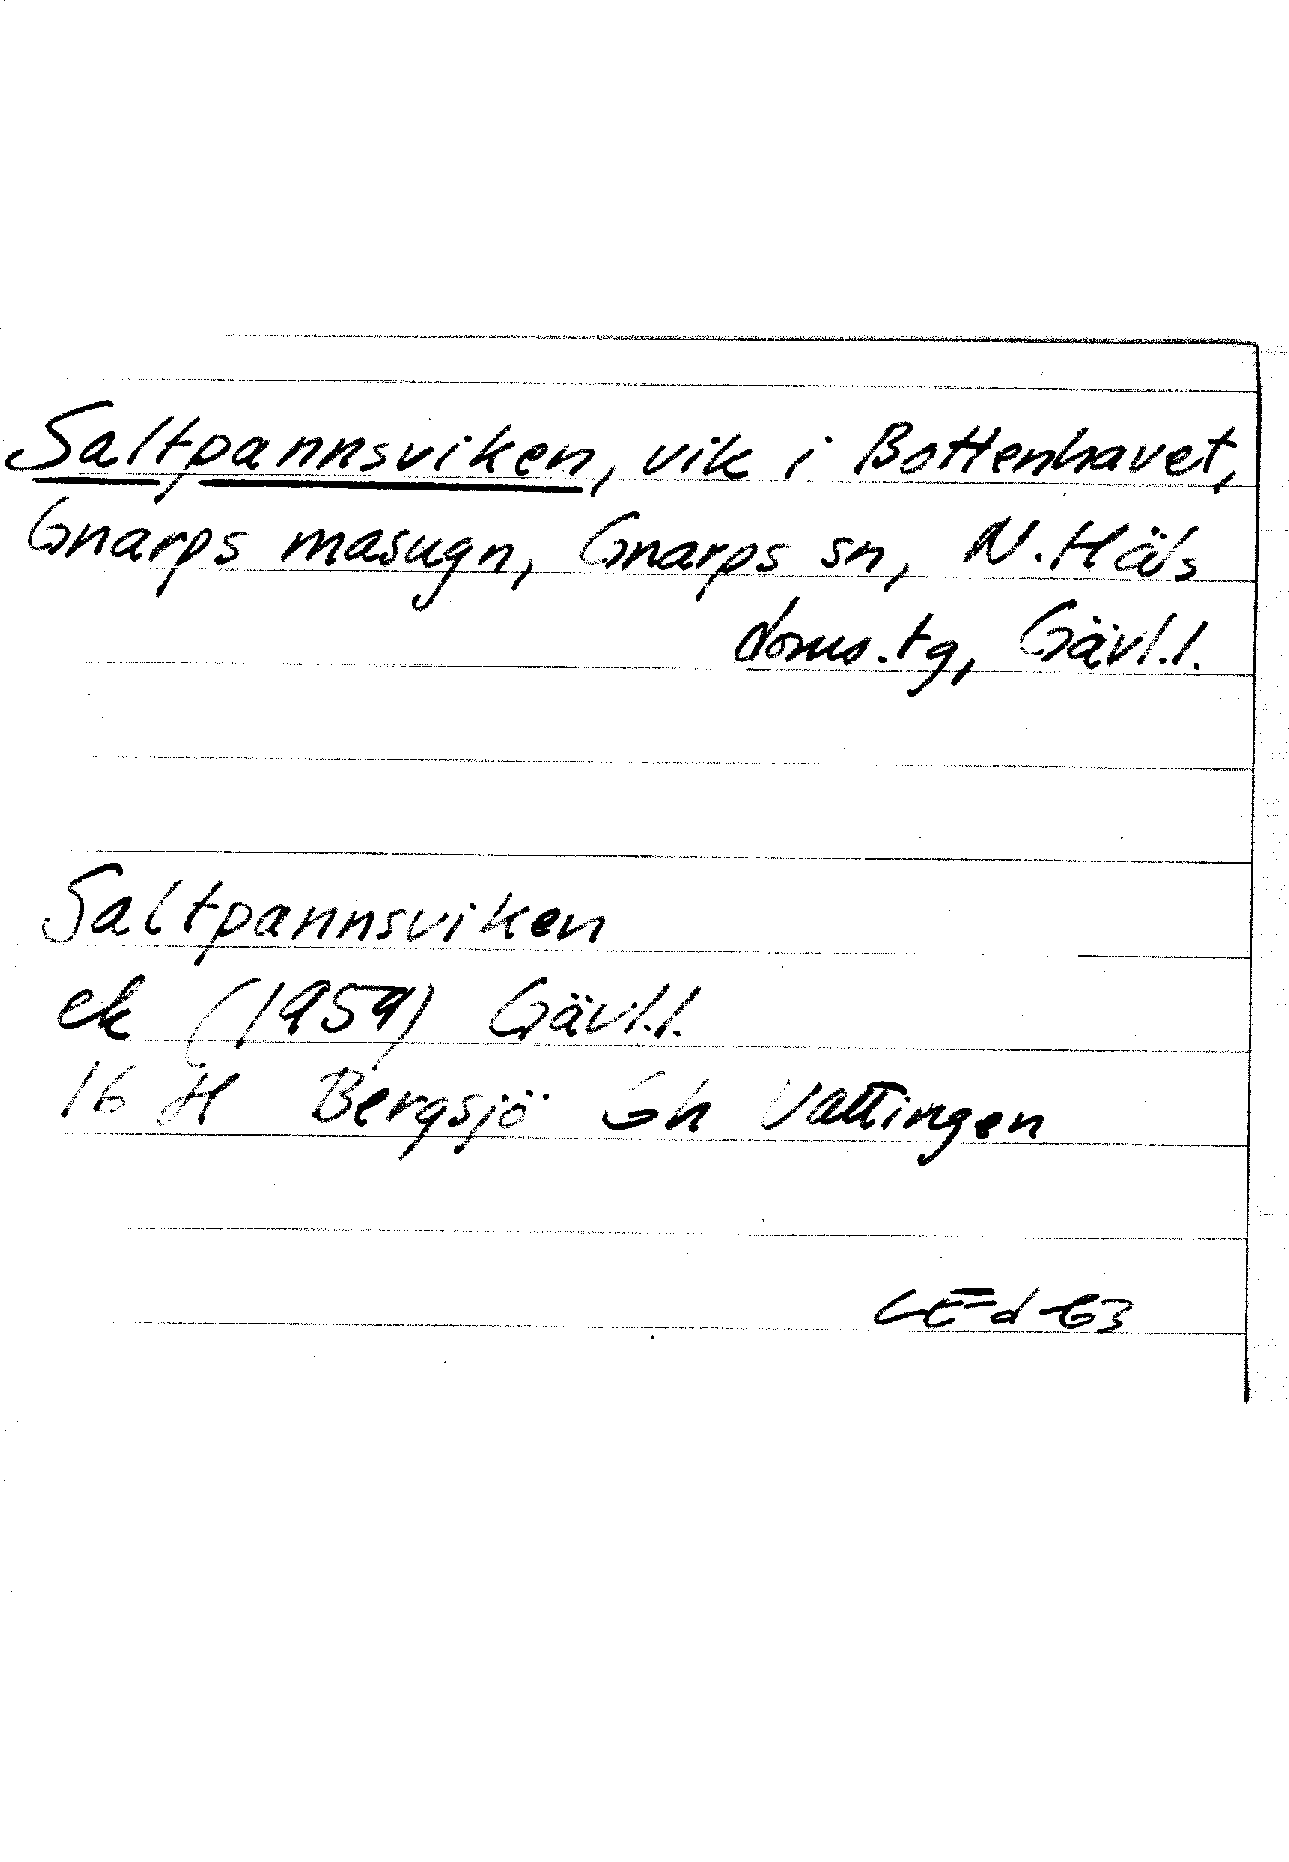 Saltpannsviken, vik i Bottenhavet,
Gnarps masugn, Gnarps sn, N. Häls
doms.tg, Gävl.l.
Saltpannsviken
ek (1959) Gävl.l.
16 H Bergsjö Gh Vattingen
LEd 63